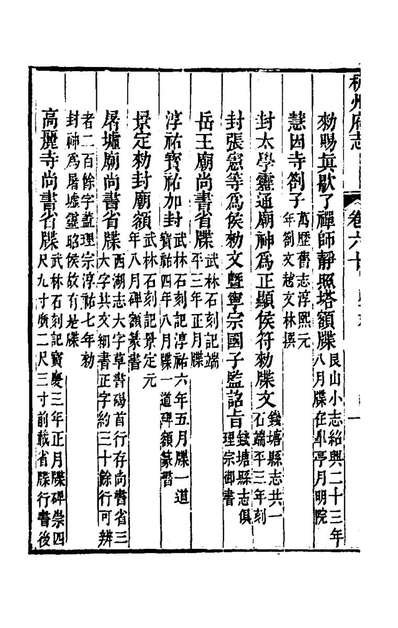 杭州府志
卷六十
勑賜真歇了禪師靜照塔額牒
艮山小志紹興二十三年
八月牒在臯亭月明院
慧因寺劄子
萬歷舊志淳熙元
年劉文越文林撰
封太學靈通廟神為正顯侯符勑牒文
錢塘縣志共一
石端平三年刻
封張憲等為侯勑文曁寧宗國子監詔旨
錢塘縣志俱
理宗御書
岳王廟尚書省牒
武林石刻記端
平三年正月牒
淳祐寶祐加封
武林石刻記淳祐六年五月牒一道
寶祐四年八月牒一道碑額篆書
景定勑封廟額
武林石刻記景定元
年八月牒碑額篆書
屠墟廟尚書省牒
西湖志大字草書碣首行存尚書省三
大字共文細書正字約三十餘行可辨
者二百餘字蓋理宗淳祐七年勑
封神為屠墟靈昭侯故有是牒
高麗寺尚書省牒
武林石刻記寶慶三年正月牒碑崇四
尺九寸廣二尺三寸前載省牒行書後